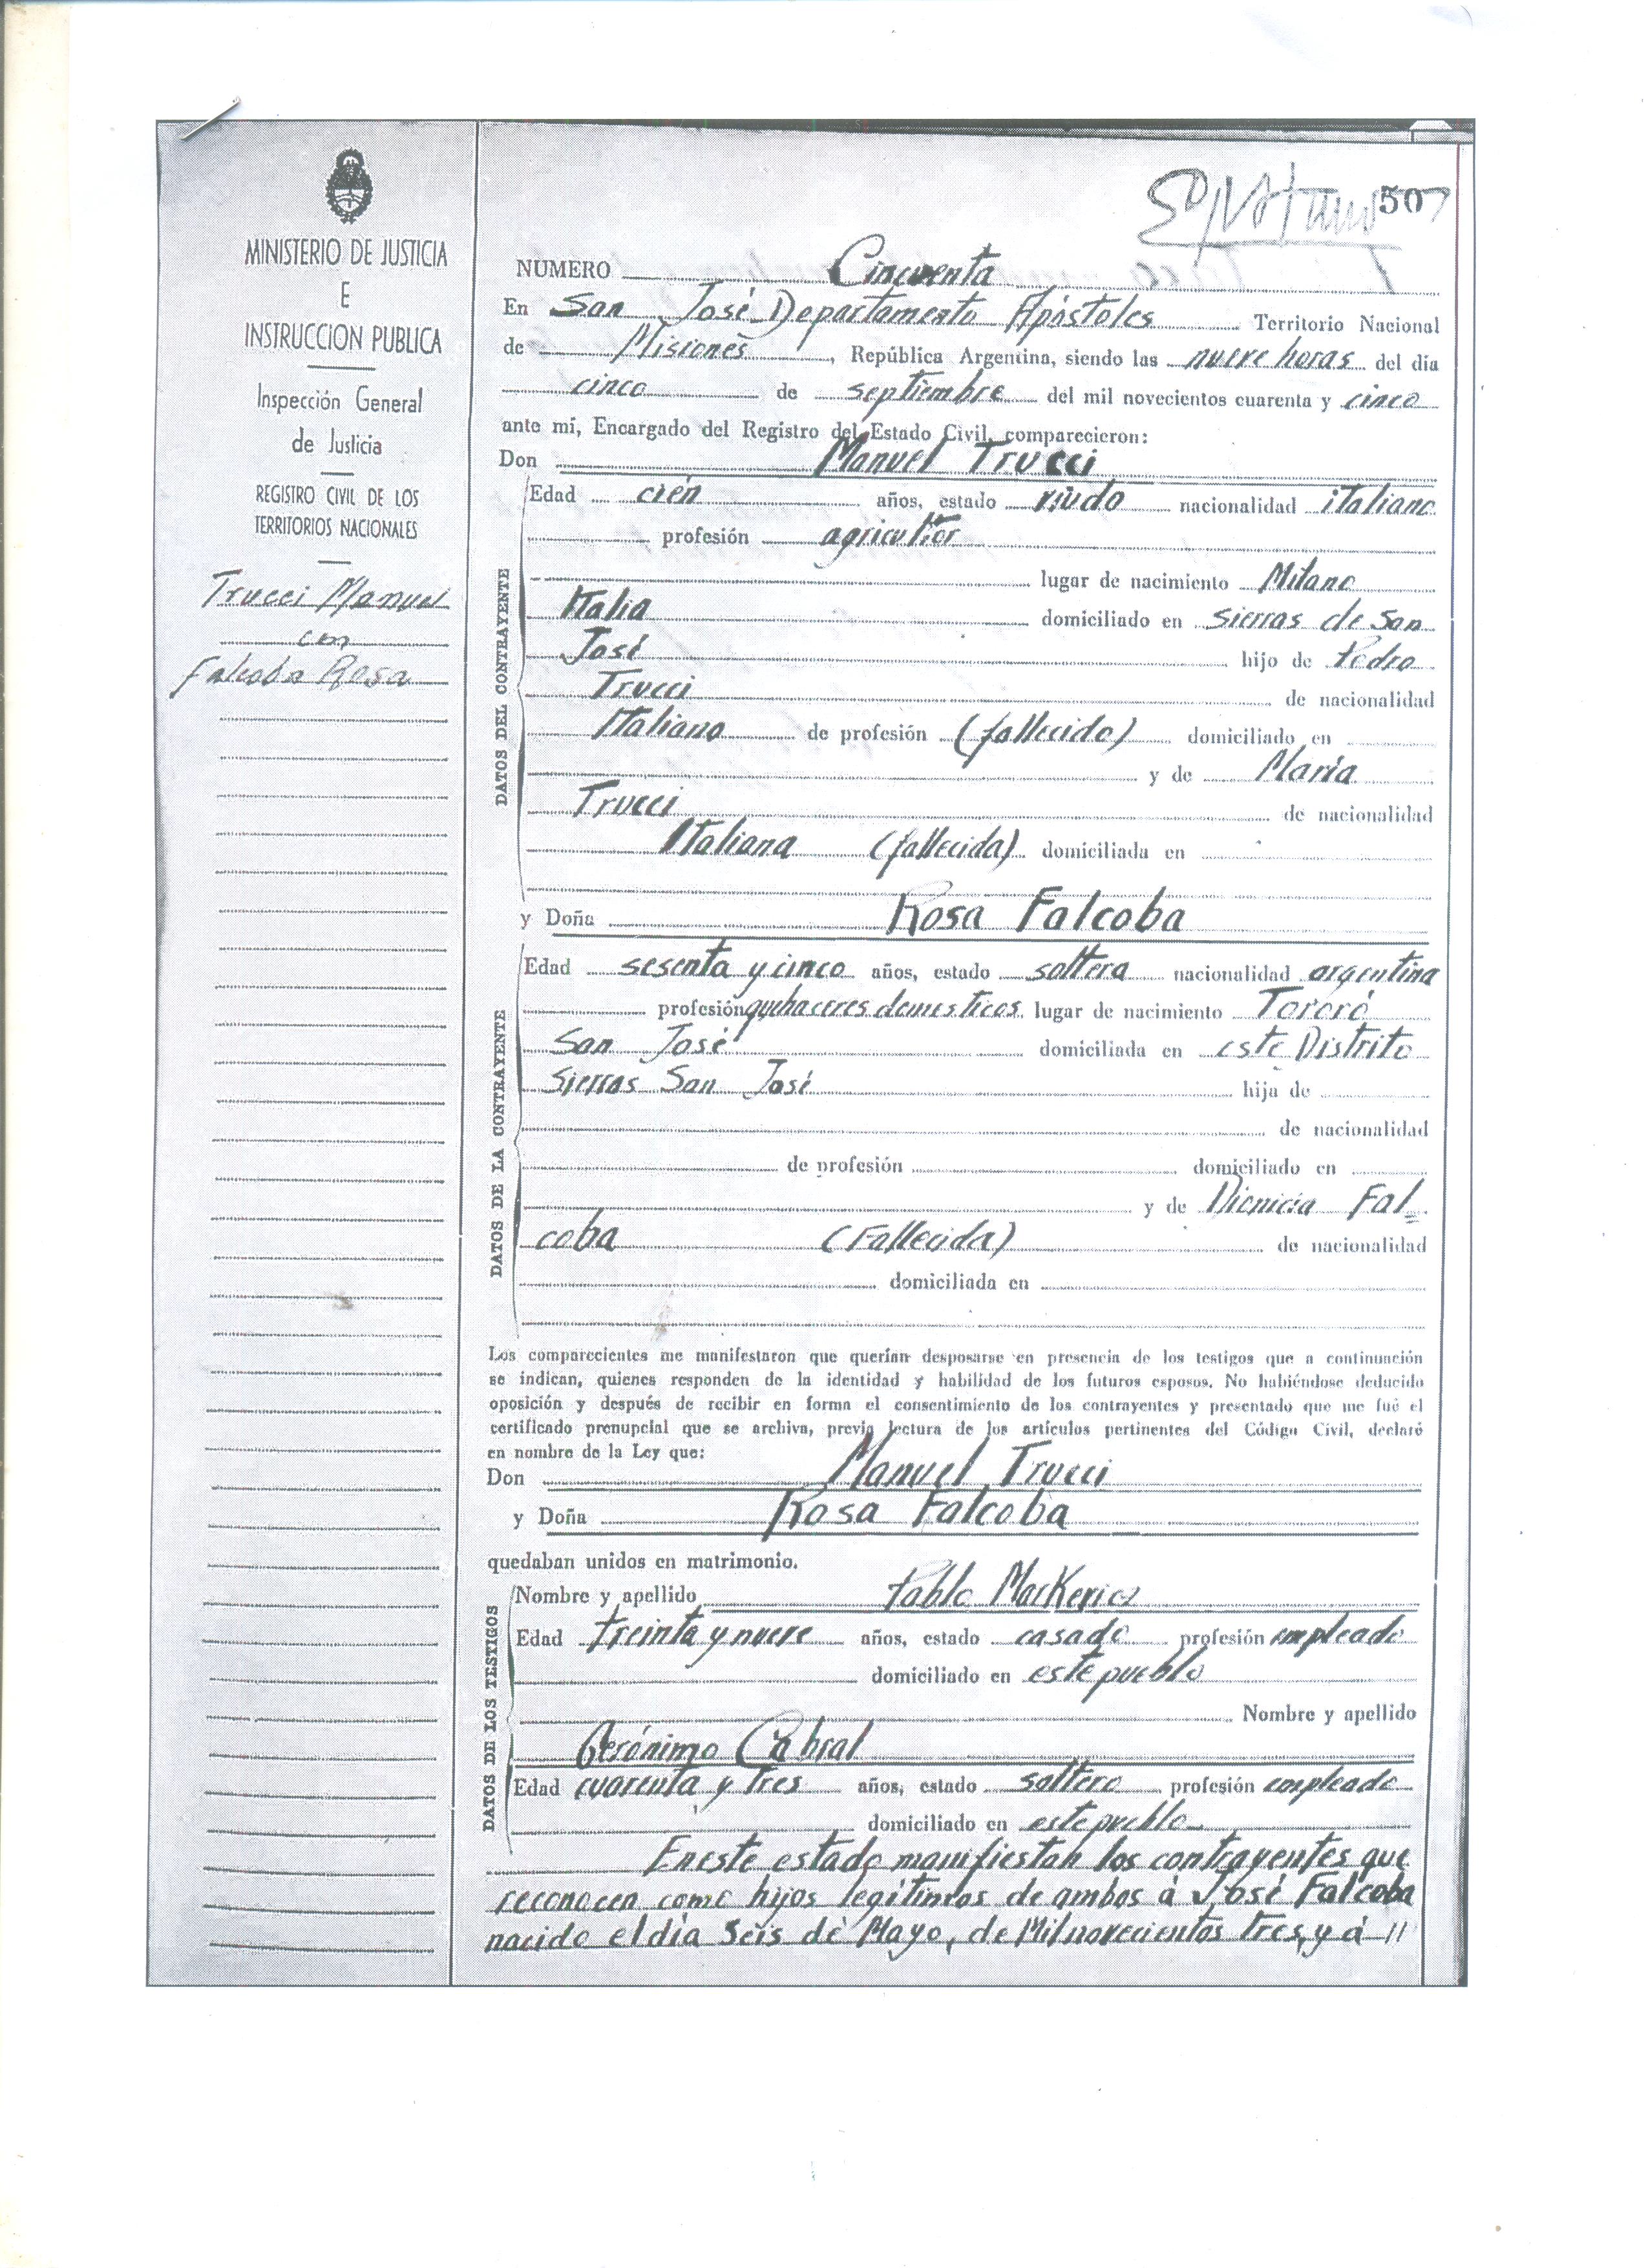 MINISTERIO DE JUSTICIA
E
INSTRUCCION PUBLICA
Inspección General
de Justicia
REGISTRO CIVIL DE LOS
TERRITORIOS NACIONALES
Trucci Manuel
con
Falcoba Rosa
507
NUMERO Cincuenta
En San José Departamento Apóstoles Territorio Nacional
de Misiones, República Argentina, siendo las nueve horas del día
cinco de septiembre del mil novecientos cuarenta y cinco
ante mí, Encargado del Registro del Estado Civil, comparecieron:
Don Manuel Trucci
DATOS DEL CONTRAYENTE
Edad cién años, estado viudo nacionalidad italiano
profesión agricultor
lugar de nacimiento Milano
Italia domiciliado en sierras de San
José hijo de Pedro
Trucci de nacionalidad
Italiano de profesión (fallecido) domiciliado en
y de María
Trucci de nacionalidad
Italiana (fallecida) domiciliada en
y Doña Rosa Falcoba
DATOS DE LA CONTRAYENTE
Edad sesenta y cinco años, estado soltera nacionalidad argentina
profesión quehaceres domesticos lugar de nacimiento Tororó
San José domiciliada en este Distrito
Sierras San José hija de
de nacionalidad
de profesión domiciliado en
y de Dionicia Fal=
coba (Fallecida) de nacionalidad
domiciliada en
Los comparecientes me manifestaron que querían desposarse en presencia de los testigos que a continuación
se indican, quienes responden de la identidad y habilidad de los futuros esposos. No habiéndose deducido
oposición y después de recibir en forma el consentimiento de los contrayentes y presentado que me fué el
certificado prenupcial que se archiva, previa lectura de los artículos pertinentes del Código Civil, declaré
en nombre de la Ley que:
Don Manuel Trucci
y Doña Rosa Falcoba
quedaban unidos en matrimonio.
DATOS DE LOS TESTIGOS
Nombre y apellido Pablo
Edad treinta y nueve años, estado casado profesión empleado
domiciliado en este pueblo
Nombre y apellido
Gerónimo Cabral
Edad cuarenta y tres años, estado soltero profesión empleado
domiciliado en este pueblo
En este estado manifiestan los contrayentes que
reconocen como hijos legítimos de ambos á José Falcoba
nacido el día Seis de Mayo, de Mil novecientos tres, y á //